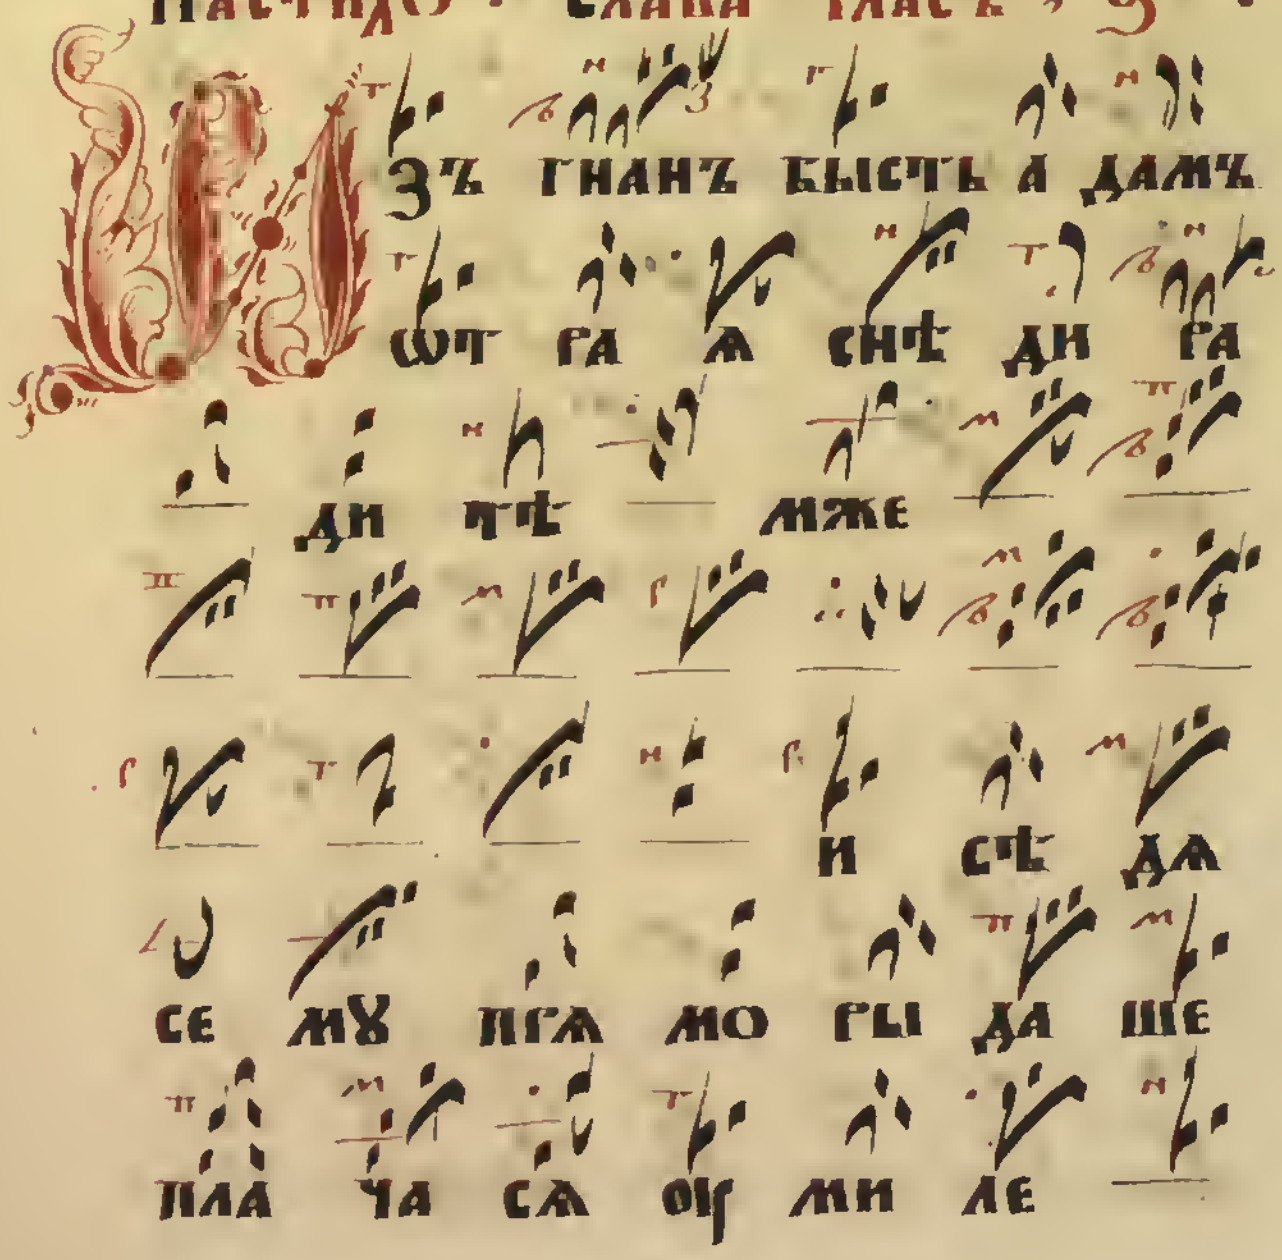 настидо · слава гласъ , з ·
Изъ гнанъ бысть а дамъ
ѿт ра ѧ снѣ ди ра
ди тѣ мже
и сѣ дѧ
се мꙋ прѧ мо ры да ше
пла ча сѧ оу ми ле